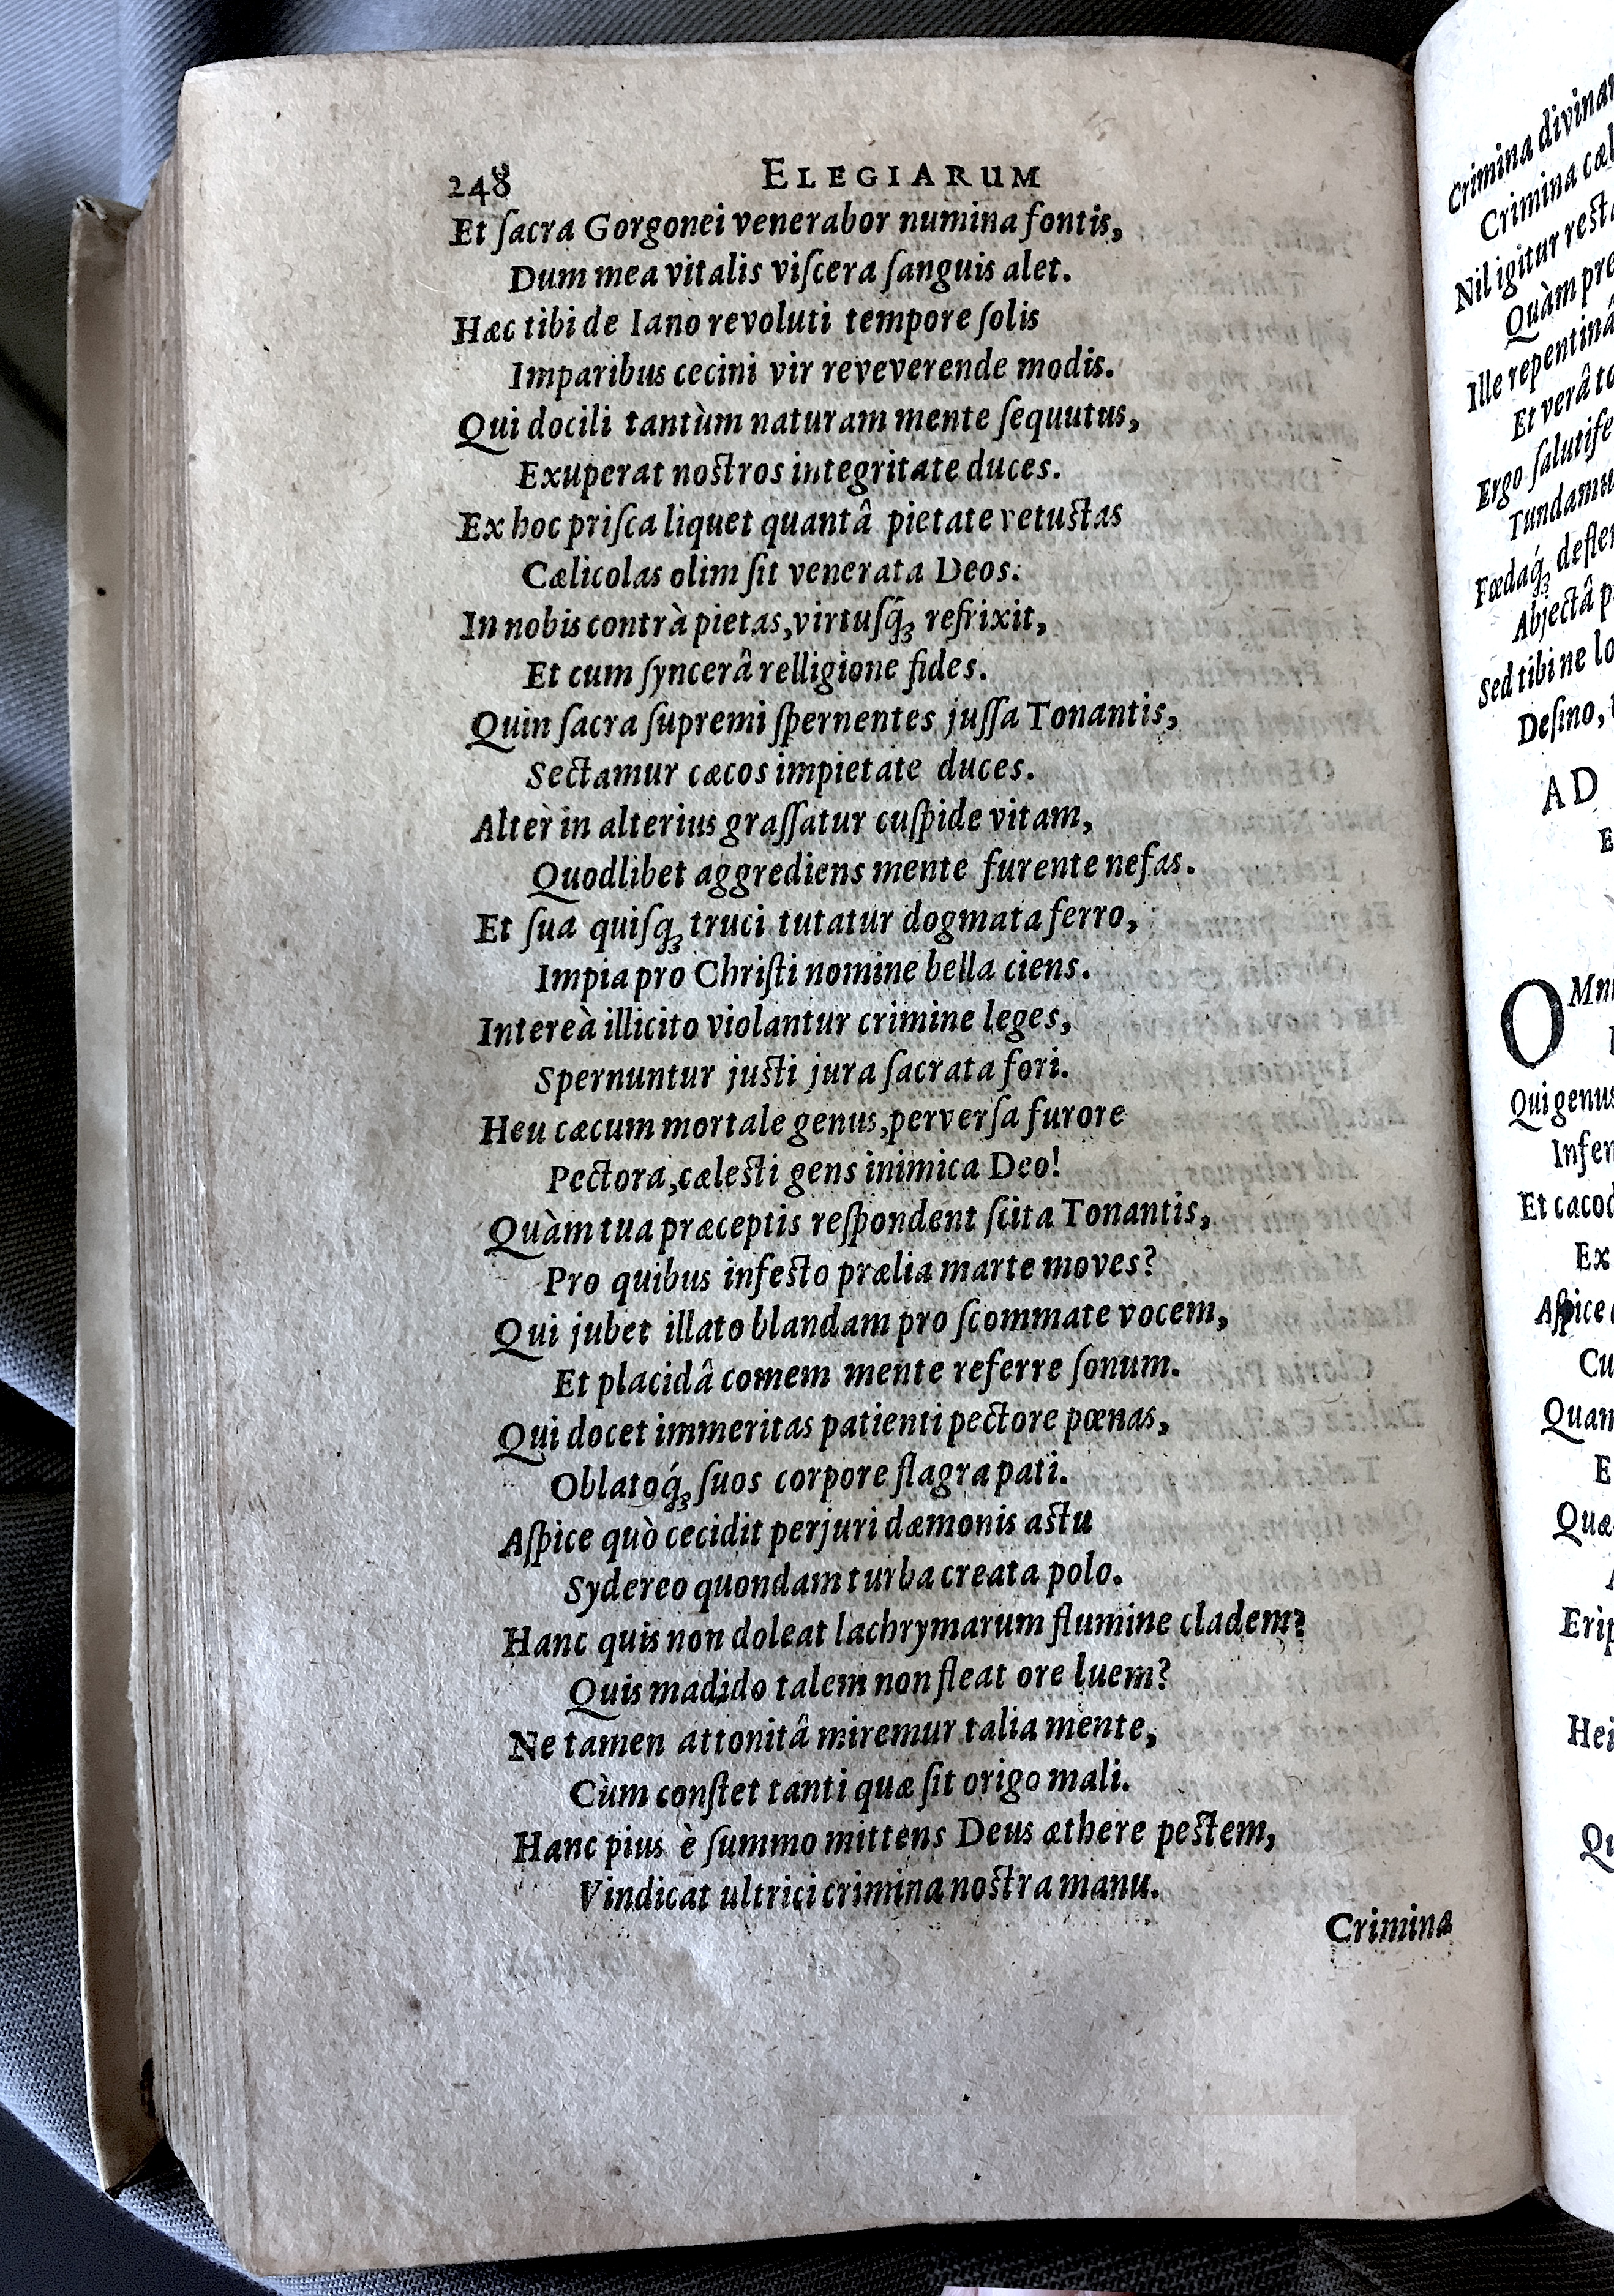 248 ELEGIARUM
Et ſacra Gorgonei venerabor numina fontis,
Dum mea vitalis viſcera ſanguis alet.
Hæc tibi de Iano revoluti tempore ſolis
Imparibus cecini vir reveverende modis.
Qui docili tantùm naturam mente ſequutus,
Exuperat nostros integritate duces.
Ex hoc priſca liquet quantâ pietate vetustas
Cælicolas olim ſit venerata Deos.
In nobis contrà pietas, virtuſq́ꝫ refrixit,
Et cum ſyncerâ relligione fides.
Quin ſacra ſupremi ſpernentes juſſa Tonantis,
Sectamur cæcos impietate duces.
Alter in alterius graſſatur cuſpide vitam,
Quodlibet aggrediens mente furente nefas.
Et ſua quiſqꝫ truci tutatur dogmata ferro,
Impia pro Chriſti nomine bella ciens.
Intereà illicito violantur crimine leges,
Spernuntur justi jura ſacrata fori.
Heu cæcum mortale genus, perverſa furore
Pectora, cælesti gens inimica Deo!
Quàm tua præceptis reſpondent ſcita Tonantis,
Pro quibus infesto prælia marte moves?
Qui jubet illato blandam pro ſcommate vocem,
Et placidâ comem mente referre ſonum.
Qui docet immeritas patienti pectore pœnas,
Oblatoq́ꝫ ſuos corpore flagra pati.
Aſpice quò cecidit perjuri dæmonis astu
Sydereo quondam turba creata polo.
Hanc quis non doleat lachrymarum flumine cladem?
Quis madido talem non fleat ore luem?
Ne tamen attonitâ miremur talia mente,
Cùm conſtet tanti quæ ſit origo mali.
Hanc pius è ſummo mittens Deus æthere pestem,
Vindicat ultrici crimina nostra manu.
Crimina
Crimina
Crimina
Nil igitur
Quàm
Ille
Et verâ
Ergo
Tundamu
Fœdaq́ꝫ
Abjectâ
Sed tibi ne
Deſino,
AD
OMn
Qui genus
Infer
Et
Ex
Aſpice
Cu
Quan
E
Quæ
Erip
Hei
Qu